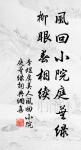 風回小院庭蕪綠
柳眼春相續
李煜虞美人風回小院
庭蕪綠